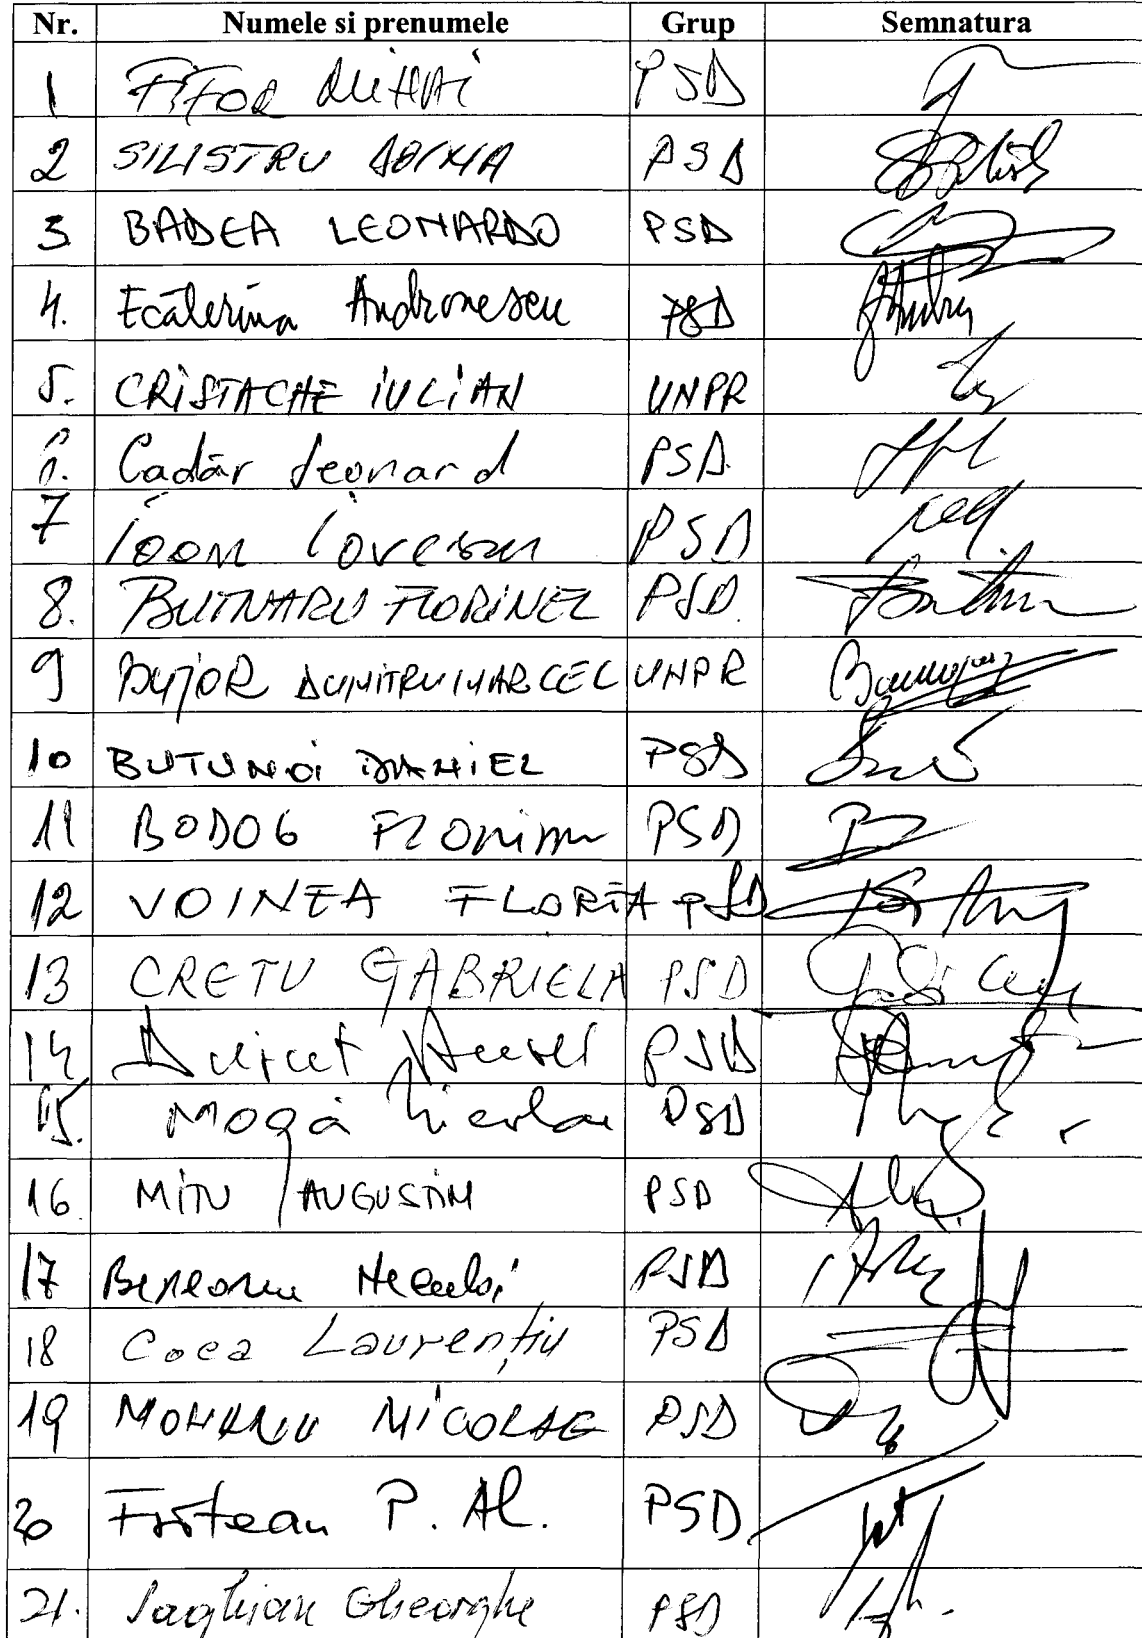 Nr. Numele si prenumele Grup Semnatura
1 FIFOR MIHAI PSD
2 SILISTRU DOINA PSD
3 BADEA LEONARDO PSD
4. Ecaterina Andronescu PSD
5. CRISTACHE IULIAN UNPR
6. Cadăr Leonard PSD.
7 Ioan PSD
8. BUTNARU FLORINEL PSD.
9 BUJOR DUMITRU MARCEL UNPR
10 BUTUNOI DANIEL PSD
11 BODOG Florian PSD
12 VOINEA FLOREA PSD
13 CRETU GABRIELA PSD
14 PSD
15. Moga Nicolae PSD
16 MITU AUGUSTIN PSD
17 PSD
18 Coca Laurențiu PSD
19 MOHANU NICOLAE PSD
20 P. Al. PSD
21. Saghian Gheorghe PSD